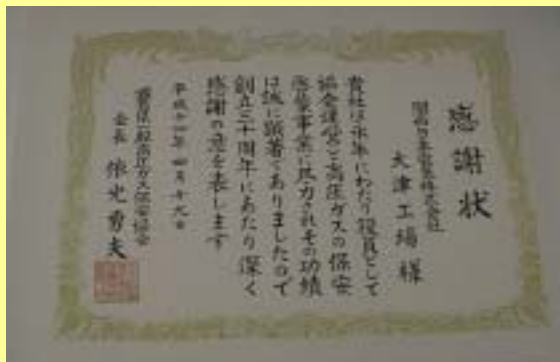 感謝状
関西日本電気株式会社
大津工場 様
貴社は永年にわたり役員として
協会運営と高圧ガスの保安
啓蒙事業に尽力されその功績
は誠に顕著でありましたので
創立三十周年にあたり深く
感謝の意を表します
平成十一年 四月 十九日
滋賀県一般高圧ガス保安協会
会長